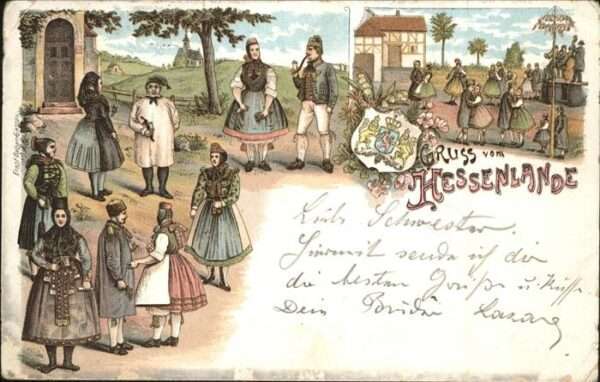 GRUSS vom
HESSENLANDE
Liebe Schwester.
Hiermit sende ich dir
die besten Grüße u. Küsse
Dein Bruder